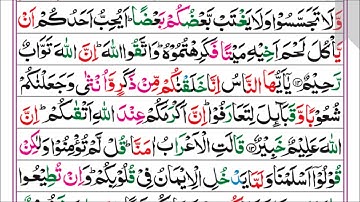 وَّلَا تَجَسَّسُوۡا وَلَا يَغۡتَبْ بَّعۡضُكُمۡ بَعۡضًا ؕ اَيُحِبُّ اَحَدُكُمۡ اَنۡ
يَّاۡكُلَ لَحۡمَ اَخِيۡهِ مَيۡتًا فَكَرِهۡتُمُوۡهُ ؕ وَاتَّقُوا اللّٰهَ ؕ اِنَّ اللّٰهَ تَوَّابٌ
رَّحِيۡمٌ ﴿۱۲﴾ يٰۤاَيُّهَا النَّاسُ اِنَّا خَلَقۡنٰكُمۡ مِّنۡ ذَكَرٍ وَّاُنۡثٰى وَجَعَلۡنٰكُمۡ
شُعُوۡبًا وَّقَبَآئِلَ لِتَعَارَفُوۡا ؕ اِنَّ اَكۡرَمَكُمۡ عِنۡدَ اللّٰهِ اَتۡقٰٮكُمۡ ؕ اِنَّ
اللّٰهَ عَلِيۡمٌ خَبِيۡرٌ ﴿۱۳﴾ قَالَتِ الۡاَعۡرَابُ اٰمَنَّا ؕ قُلْ لَّمۡ تُؤۡمِنُوۡا وَلٰكِنۡ
قُوۡلُوۡۤا اَسۡلَمۡنَا وَلَمَّا يَدۡخُلِ الۡاِيۡمَانُ فِىۡ قُلُوۡبِكُمۡ ؕ وَاِنۡ تُطِيۡعُوا